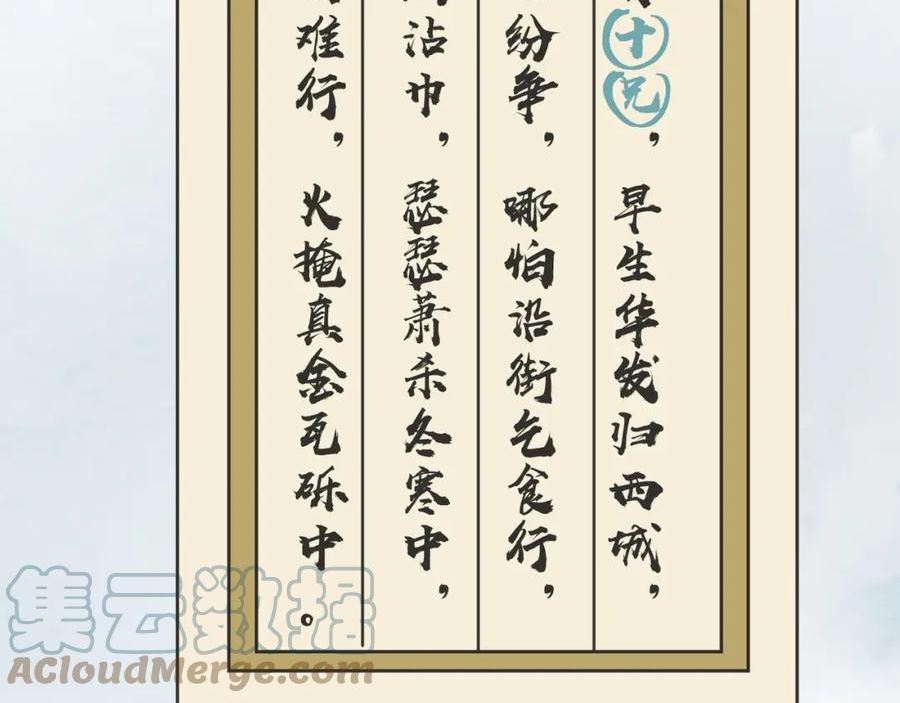 十兄，早生华发归西城，
纷争，哪怕沿街乞食行，
沾巾，瑟瑟萧杀冬寒中，
难行，火掩真金瓦砾中。
集云数据
ACloudMerge.com